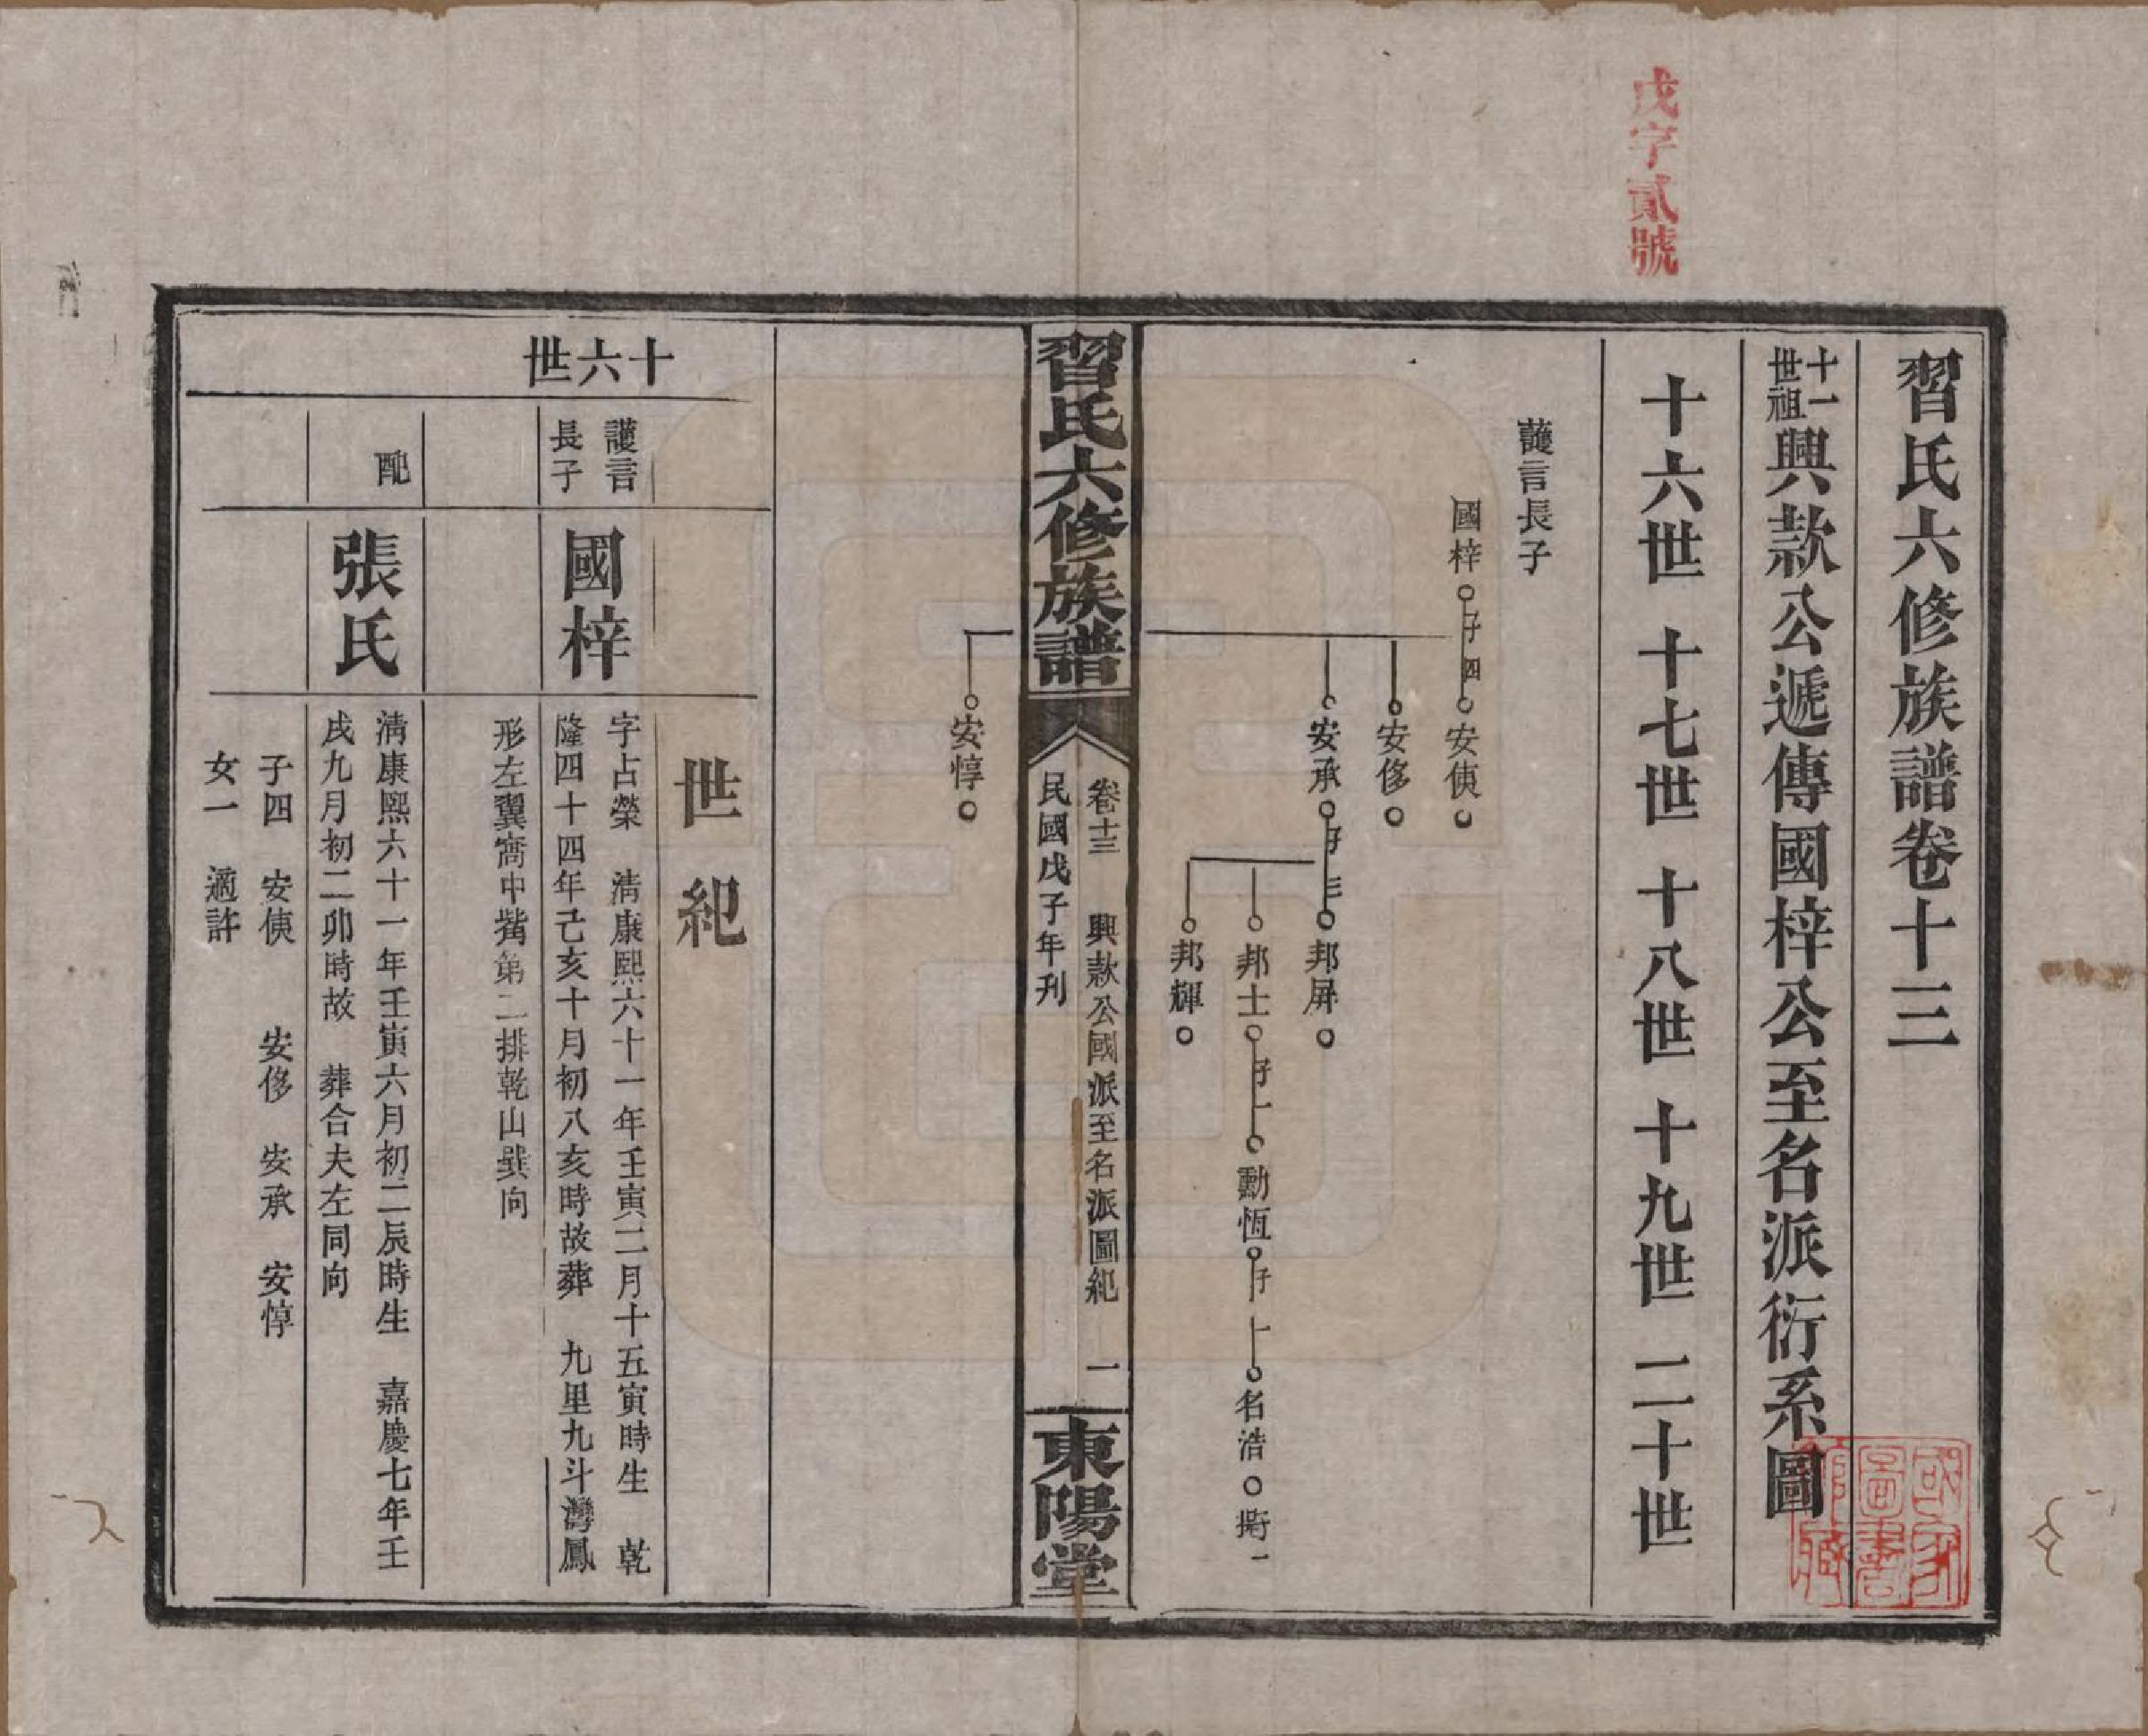 戊字貳號
習氏六修族譜卷十三
十一世祖興款公遞傳國梓公至名派衍系圖
十六世 十七世 十八世 十九世 二十世
護言長子
國梓 子四 安𠉀
安侈
安承 子三 邦屏
邦士 子一 勳恆 子一 名浩
邦輝
習氏六修族譜
卷十三 興款公國派至名派圖紀 一
民國戊子年刊
東陽堂
安惇
世紀
十六世
護言長子
國梓
字占榮 清康熙六十一年壬寅二月十五寅時生 乾
隆四十四年己亥十月初八亥時故葬 九里九斗灣鳳
形左翼窩中觜第二排乾山巽向
配
張氏
清康熙六十一年壬寅六月初二辰時生 嘉慶七年壬
戌九月初二卯時故 葬合夫左同向
子四 安 安侈 安承 安惇
女一 適許
國家圖書館藏